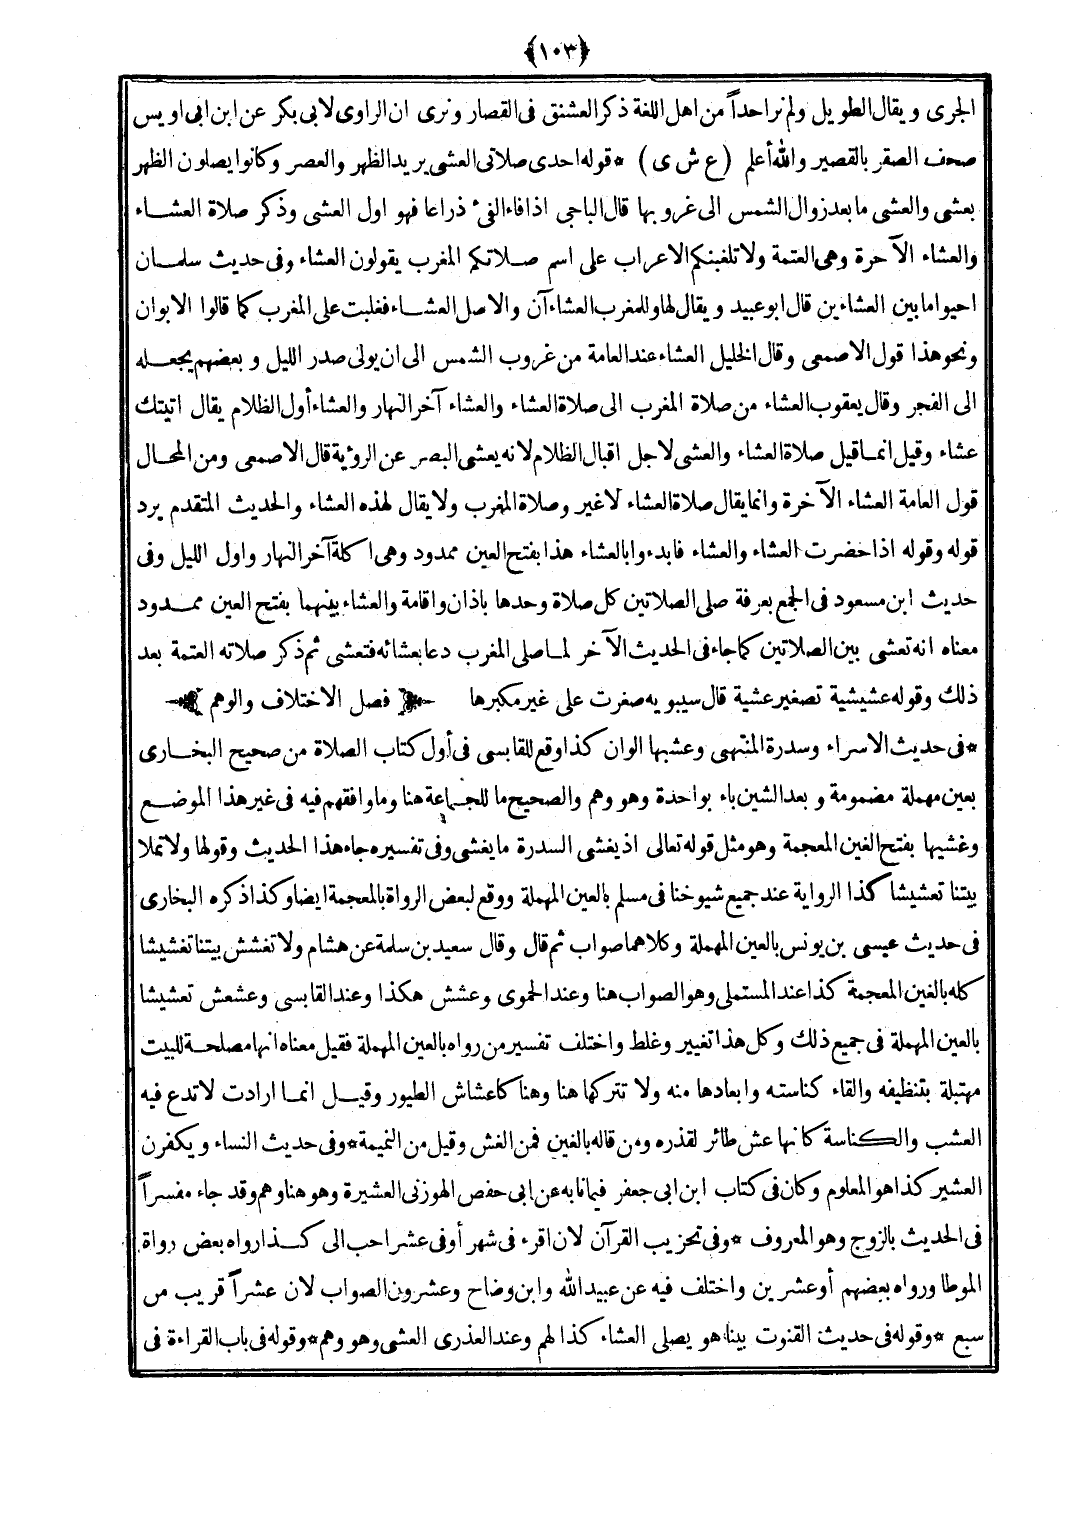 ﴿١٠٣﴾
الجرى ويقال الطويل ولم نر احداً من اهل اللغة ذكر العشنق فى القصار ونرى ان الراوى لابى بكر عن ابن ابى اويس
صحف الصقر بالقصير والله أعلم (ع ش ى) *قوله احدى صلاتى العشى يريد الظهر والعصر وكانوا يصلون الظهر
بعشى والعشى ما بعد زوال الشمس الى غروبها قال الباجى اذا فاء الفىء ذراعا فهو اول العشى وذكر صلاة العشاء
والعشاء الآخرة وهى العتمة ولا تغلبنكم الاعراب على اسم صلاتكم المغرب يقولون العشاء وفى حديث سلمان
احيوا ما بين العشاءين قال ابو عبيد ويقال لها وللمغرب العشاءآن والاصل العشاء فغلبت على المغرب كما قالوا الابوان
ونحو هذا قول الاصمعى وقال الخليل العشاء عند العامة من غروب الشمس الى ان يولى صدر الليل وبعضهم يجعله
الى الفجر وقال يعقوب العشاء من صلاة المغرب الى صلاة العشاء والعشاء آخر النهار والعشاء أول الظلام يقال اتيتك
عشاء وقيل انما قيل صلاة العشاء والعشى لاجل اقبال الظلام لانه يعشى البصر عن الرؤية قال الاصمعى ومن المحال
قول العامة العشاء الآخرة وانما يقال صلاة العشاء لا غير وصلاة المغرب ولا يقال لهذه العشاء والحديث المتقدم يرد
قوله وقوله اذا حضرت العشاء والعشاء فابدءوا بالعشاء هذا بفتح العين ممدود وهى اكلة آخر النهار واول الليل وفى
حديث ابن مسعود فى الجمع بعرفة صلى الصلاتين كل صلاة وحدها باذان واقامة والعشاء بينهما بفتح العين ممدود
معناه انه تعشى بين الصلاتين كما جاء فى الحديث الآخر لما صلى المغرب دعا بعشائه فتعشى ثم ذكر صلاته العتمة بعد
ذلك وقوله عشيشية تصغير عشية قال سيبويه صغرت على غير مكبرها ﴿ فصل الاختلاف والوهم ﴾
*فى حديث الاسراء وسدرة المنتهى وعشبها الوان كذا وقع للقابسى فى أول كتاب الصلاة من صحيح البخارى
بعين مهملة مضمومة وبعد الشين باء بواحدة وهو وهم والصحيح ما للجماعة هنا وما وافقهم فيه فى غير هذا الموضع
وغشيها بفتح الغين المعجمة وهو مثل قوله تعالى اذ يغشى السدرة ما يغشى وفى تفسيره جاء هذا الحديث وقولها ولا تملا
بيتنا تعشيشا كذا الرواية عند جميع شيوخنا فى مسلم بالعين المهملة ووقع لبعض الرواة بالمعجمة ايضا وكذا ذكره البخارى
فى حديث عيسى بن يونس بالعين المهملة وكلاهما صواب ثم قال وقال سعيد بن سلمة عن هشام ولا تغشش بيتنا تغشيشا
كله بالغين المعجمة كذا عند المستملى وهو الصواب هنا وعند الحموى وعشش هكذا وعند القابسى وعشعش تعشيشا
بالعين المهملة فى جميع ذلك وكل هذا تغيير وغلط واختلف تفسير من رواه بالعين المهملة فقيل معناه انها مصلحة للبيت
مهتبلة بتنظيفه والقاء كناسته وابعادها منه ولا تتركها هنا وهنا كاعشاش الطيور وقيل انما ارادت لا تدع فيه
العشب والكناسة كانها عش طائر لقذره ومن قاله بالغين فمن الغش وقيل من النميمة *وفى حديث النساء ويكفرن
العشير كذا هو المعلوم وكان فى كتاب ابن ابى جعفر فيما نابه عن ابى حفص الهوزنى العشيرة وهو هنا وهم وقد جاء مفسراً
فى الحديث بالزوج وهو المعروف *وفى تحزيب القرآن لان اقرء فى شهر أو فى عشر احب الى كذا رواه بعض رواة
الموطا ورواه بعضهم أو عشرين واختلف فيه عن عبيد الله وابن وضاح وعشرون الصواب لان عشراً قريب من
سبع *وقوله فى حديث القنوت بينا هو يصلى العشاء كذا لهم وعند العذرى العشى وهو وهم *وقوله فى باب القراءة فى